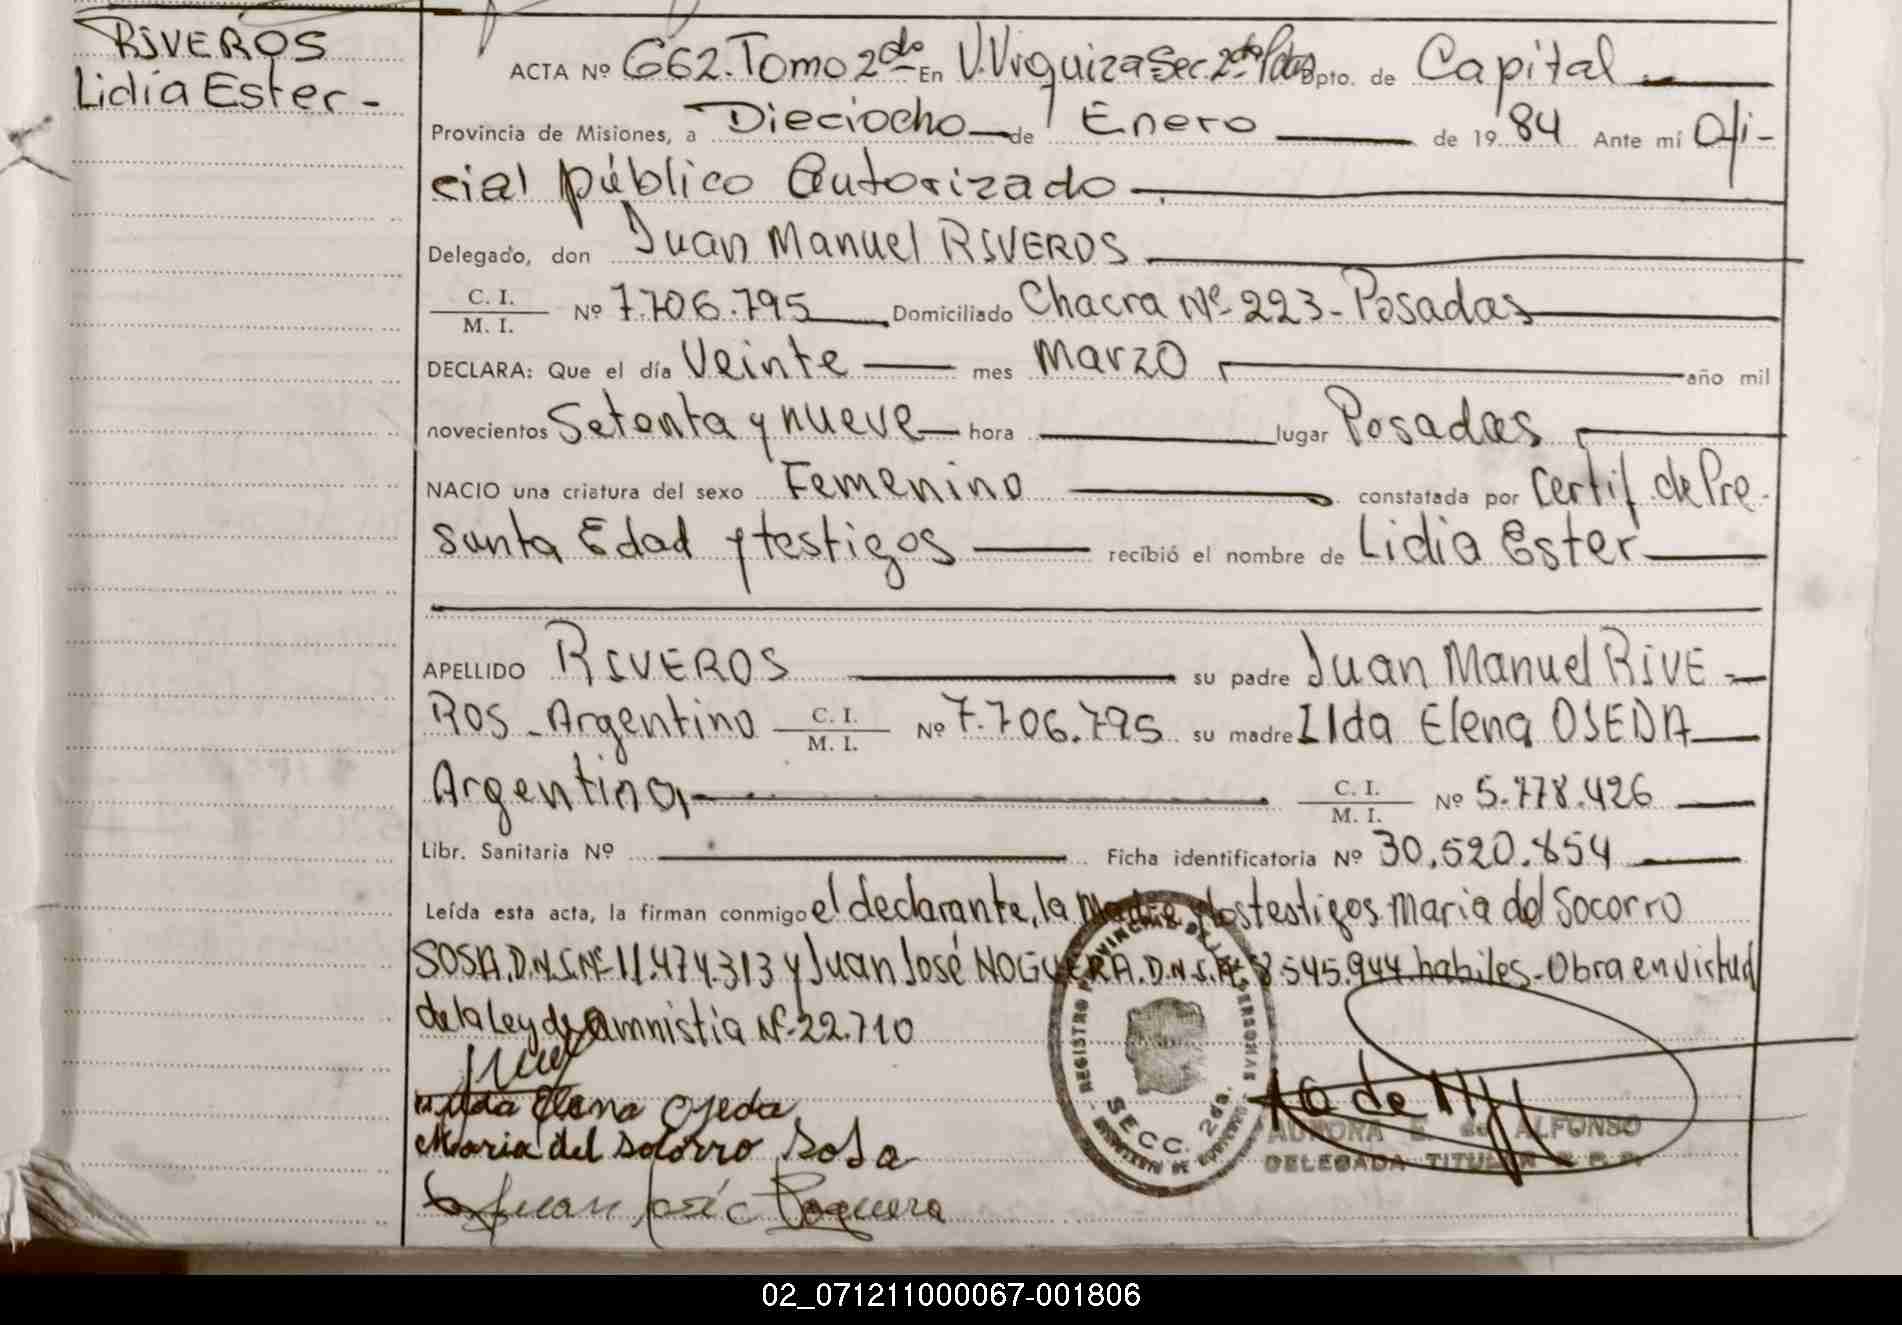 RIVEROS
Lidia Ester -
ACTA Nº 662. Tomo 2do En V. Urquiza Sec. 2da Pdas Dpto. de Capital
Provincia de Misiones, a Dieciocho de Enero de 1984 Ante mí Ofi-
cial público Autorizado
Delegado, don Juan Manuel RIVEROS
C. I. / M. I. Nº 7.706.795 Domiciliado Chacra Nº 223 - Posadas
DECLARA: Que el día Veinte mes Marzo año mil
novecientos Setenta y nueve hora lugar Posadas
NACIO una criatura del sexo Femenino constatada por Certif. de Pre-
sunta Edad y testigos recibió el nombre de Lidia Ester
APELLIDO RIVEROS su padre Juan Manuel RIVE-
ROS - Argentino C. I. / M. I. Nº 7.706.795 su madre Ilda Elena OJEDA
Argentina C. I. / M. I. Nº 5.778.426
Libr. Sanitaria Nº Ficha identificatoria Nº 30.520.854
Leída esta acta, la firman conmigo el declarante, la Madre y los testigos Maria del Socorro
SOSA. D.N.I. Nº 11.474.313 y Juan José NOGUERA. D.N.I. Nº 8.545.944 habiles - Obra en virtud
de la Ley de Amnistia Nº 22.710
Ilda Elena Ojeda
Maria del Socorro Sosa
Juan José Noguera
REGISTRO PROVINCIAL DE LAS PERSONAS
SECC. 2da.
AURORA E. de ALFONSO
DELEGADA TITULAR R. P. P.
02_071211000067-001806